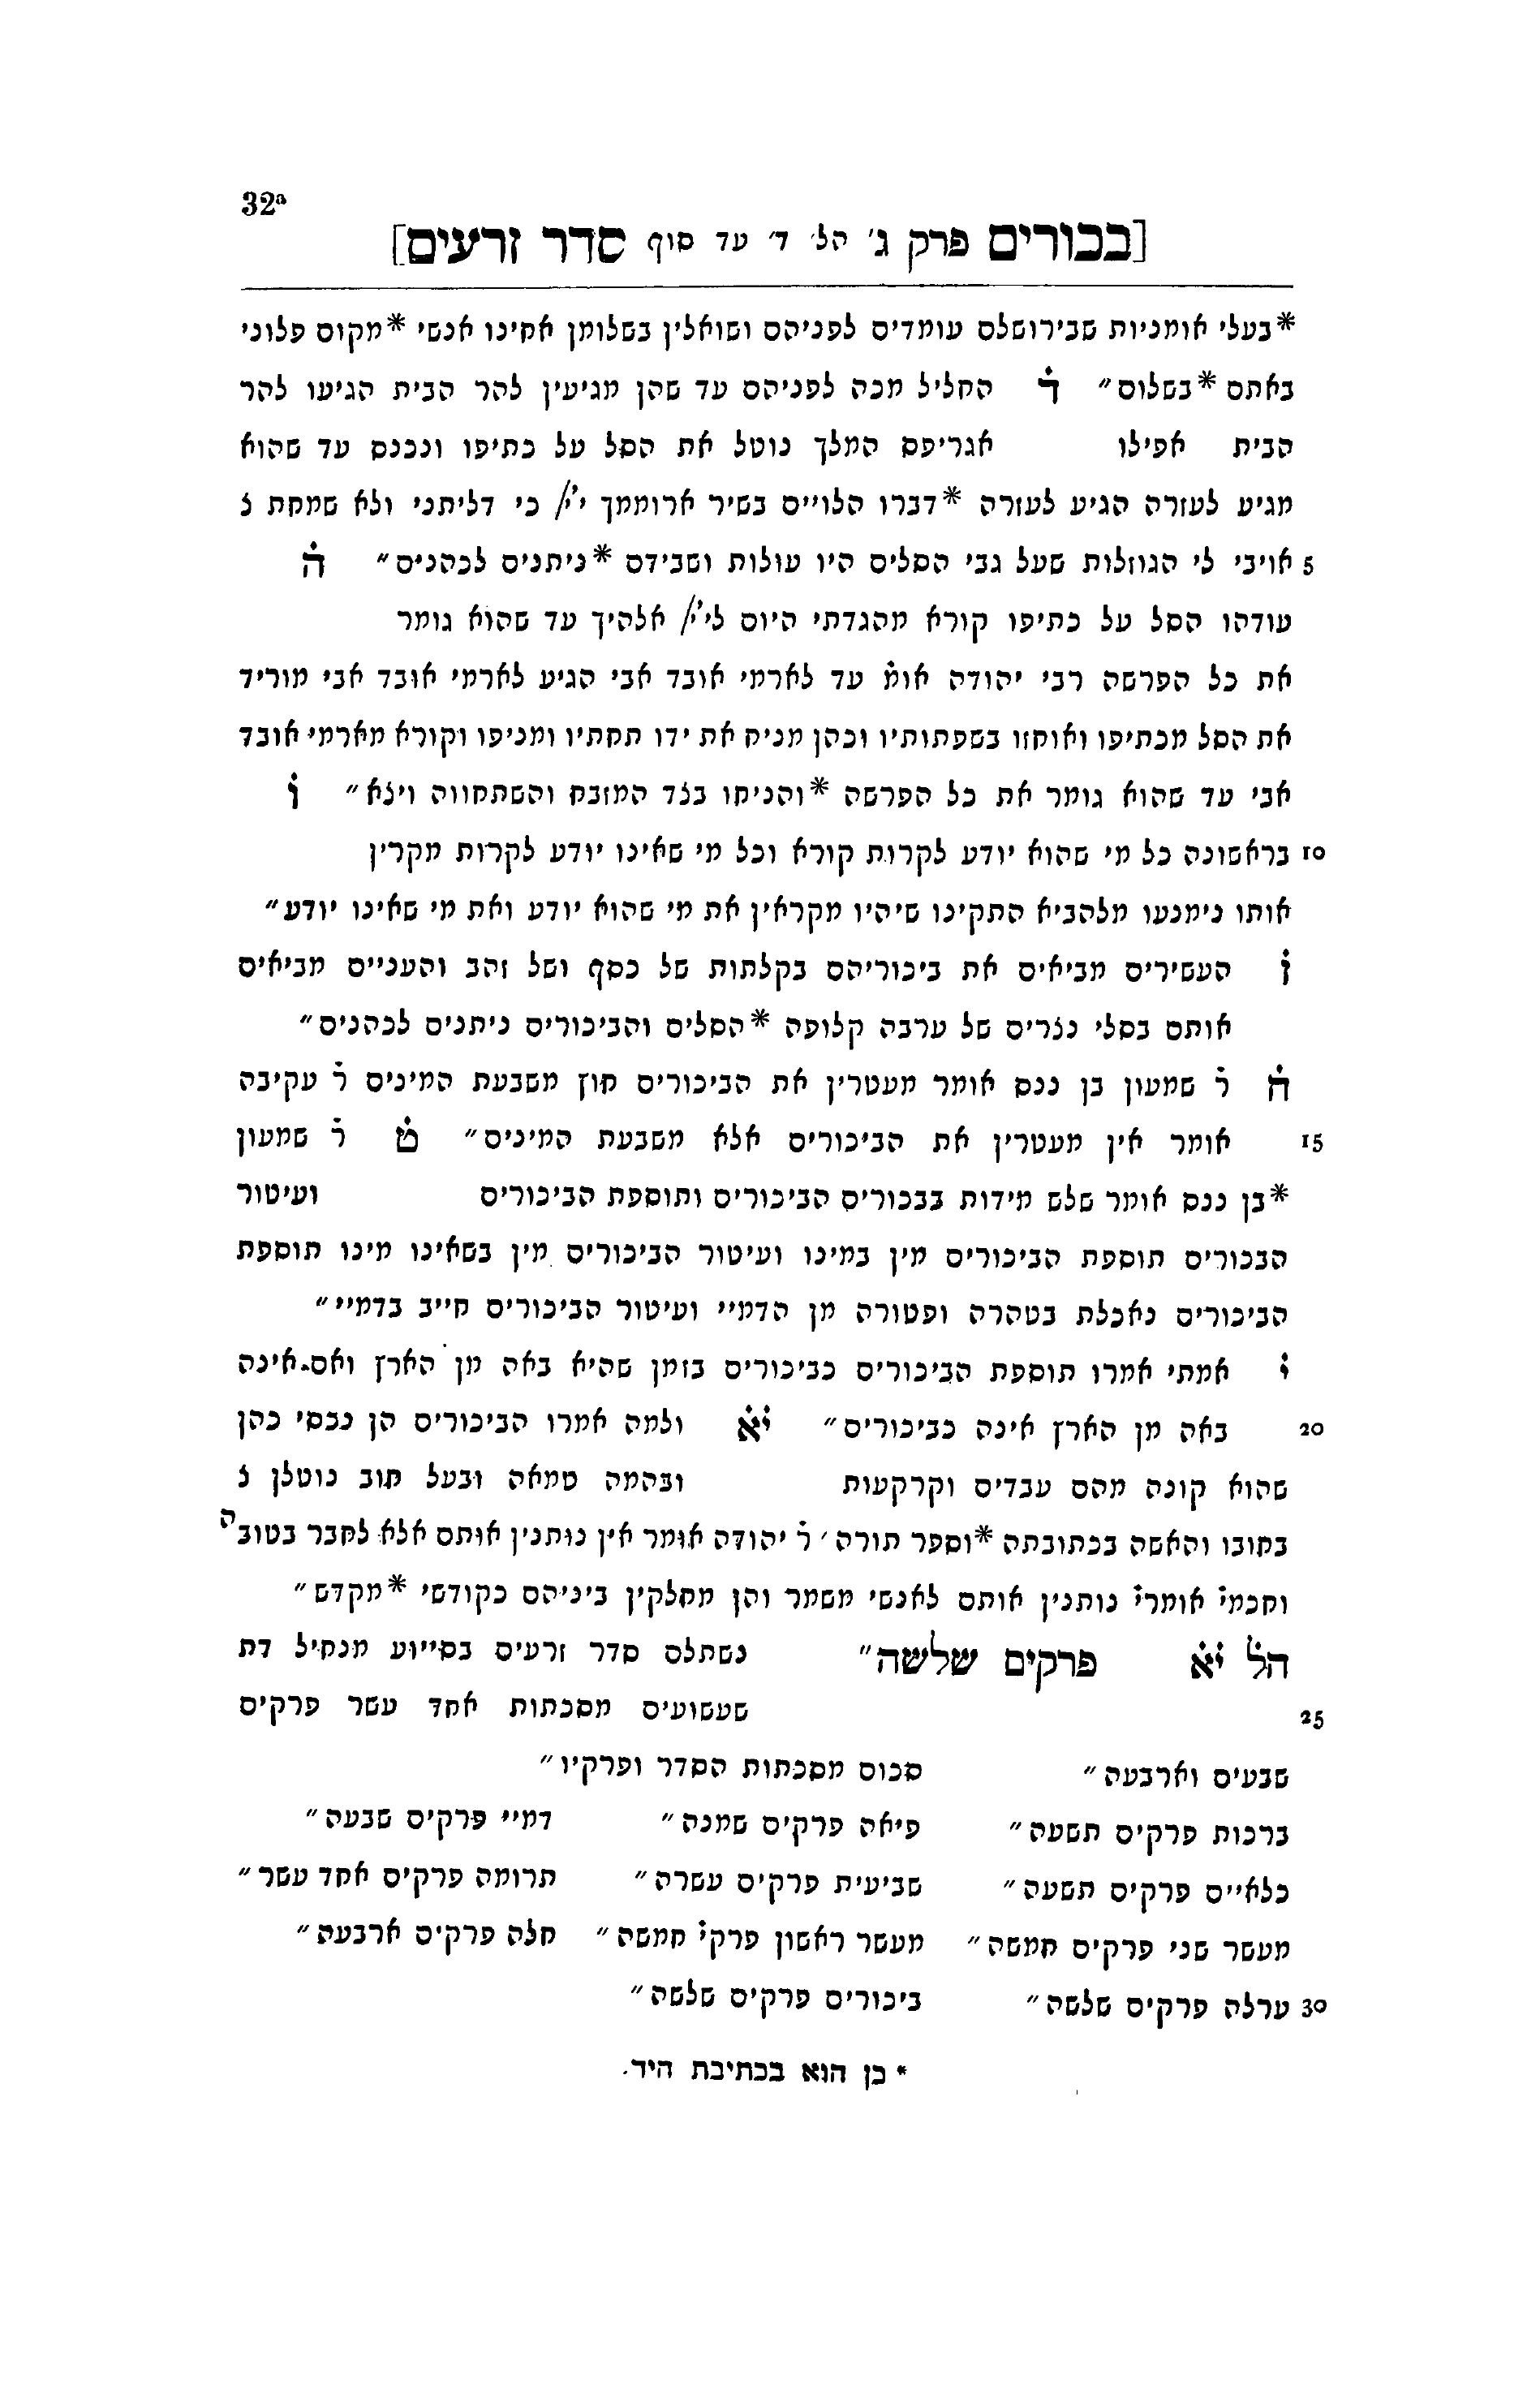 32a
[בכורים פרק ג' הל' ד' עד סוף סדר זרעים]
*בעלי אומניות שבירושלם עומדים לפניהם ושואלין בשלומן אחינו אנשי *מקום פלוני
באתם *בשלום״ ד החליל מכה לפניהם עד שהן מגיעין להר הבית הגיעו להר
הבית אפילו אגריפס המלך נוטל את הסל על כתיפו ונכנס עד שהוא
מגיע לעזרה הגיע לעזרה *דברו הלויים בשיר ארוממך י'י/ כי דליתני ולא שמחת ל
5 אויבי לי הגוזלות שעל גבי הסלים היו עולות ושבידם *ניתנים לכהנים״ ה
עודהו הסל על כתיפו קורא מהגדתי היום לי'י/ אלהיך עד שהוא גומר
את כל הפרשה רבי יהודה אומ' עד לארמי אובד אבי הגיע לארמי אובד אבי מוריד
את הסל מכתיפו ואוחזו בשפתותיו וכהן מניח את ידו תחתיו ומניפו וקורא מארמי אובד
אבי עד שהוא גומר את כל הפרשה *והניחו בצד המזבח והשתחווה ויצא״ ו
10 בראשונה כל מי שהוא יודע לקרות קורא וכל מי שאינו יודע לקרות מקרין
אותו נימנעו מלהביא התקינו שיהיו מקראין את מי שהוא יודע ואת מי שאינו יודע״
ז העשירים מביאים את ביכוריהם בקלתות של כסף ושל זהב והעניים מביאים
אותם בסלי נצרים של ערבה קלופה *הסלים והביכורים ניתנים לכהנים״
ח ר' שמעון בן ננס אומר מעטרין את הביכורים חוץ משבעת המינים ר' עקיבה
15 אומר אין מעטרין את הביכורים אלא משבעת המינים״ ט ר' שמעון
*בן ננס אומר שלש מידות בבכורים הביכורים ותוספת הביכורים ועיטור
הבכורים תוספת הביכורים מין במינו ועיטור הביכורים מין בשאינו מינו תוספת
הביכורים נאכלת בטהרה ופטורה מן הדמיי ועיטור הביכורים חייב בדמיי״
י אמתי אמרו תוספת הביכורים כביכורים בזמן שהיא באה מן הארץ ואם אינה
20 באה מן הארץ אינה כביכורים״ יא ולמה אמרו הביכורים הן נכסי כהן
שהוא קונה מהם עבדים וקרקעות ובהמה טמאה ובעל חוב נוטלן ל
בחובו והאשה בכתובתה *וספר תורה' ר' יהודה אומר אין נותנין אותם אלא לחבר בטובה
וחכמי' אומרי' נותנין אותם לאנשי משמר והן מחלקין ביניהם כקודשי *מקדש״
הל' יא פרקים שלשה״ נשתלם סדר זרעים בסייוע מנחיל דת
25 שעשועים מסכתות אחד עשר פרקים
שבעים וארבעה״ סכום מסכתות הסדר ופרקיו״
ברכות פרקים תשעה״ פיאה פרקים שמנה״ דמיי פרקים שבעה״
כלאיים פרקים תשעה״ שביעית פרקים עשרה״ תרומה פרקים אחד עשר״
מעשר שני פרקים חמשה״ מעשר ראשון פרקי' חמשה״ חלה פרקים ארבעה״
30 ערלה פרקים שלשה״ ביכורים פרקים שלשה״
* כן הוא בכתיבת היד.